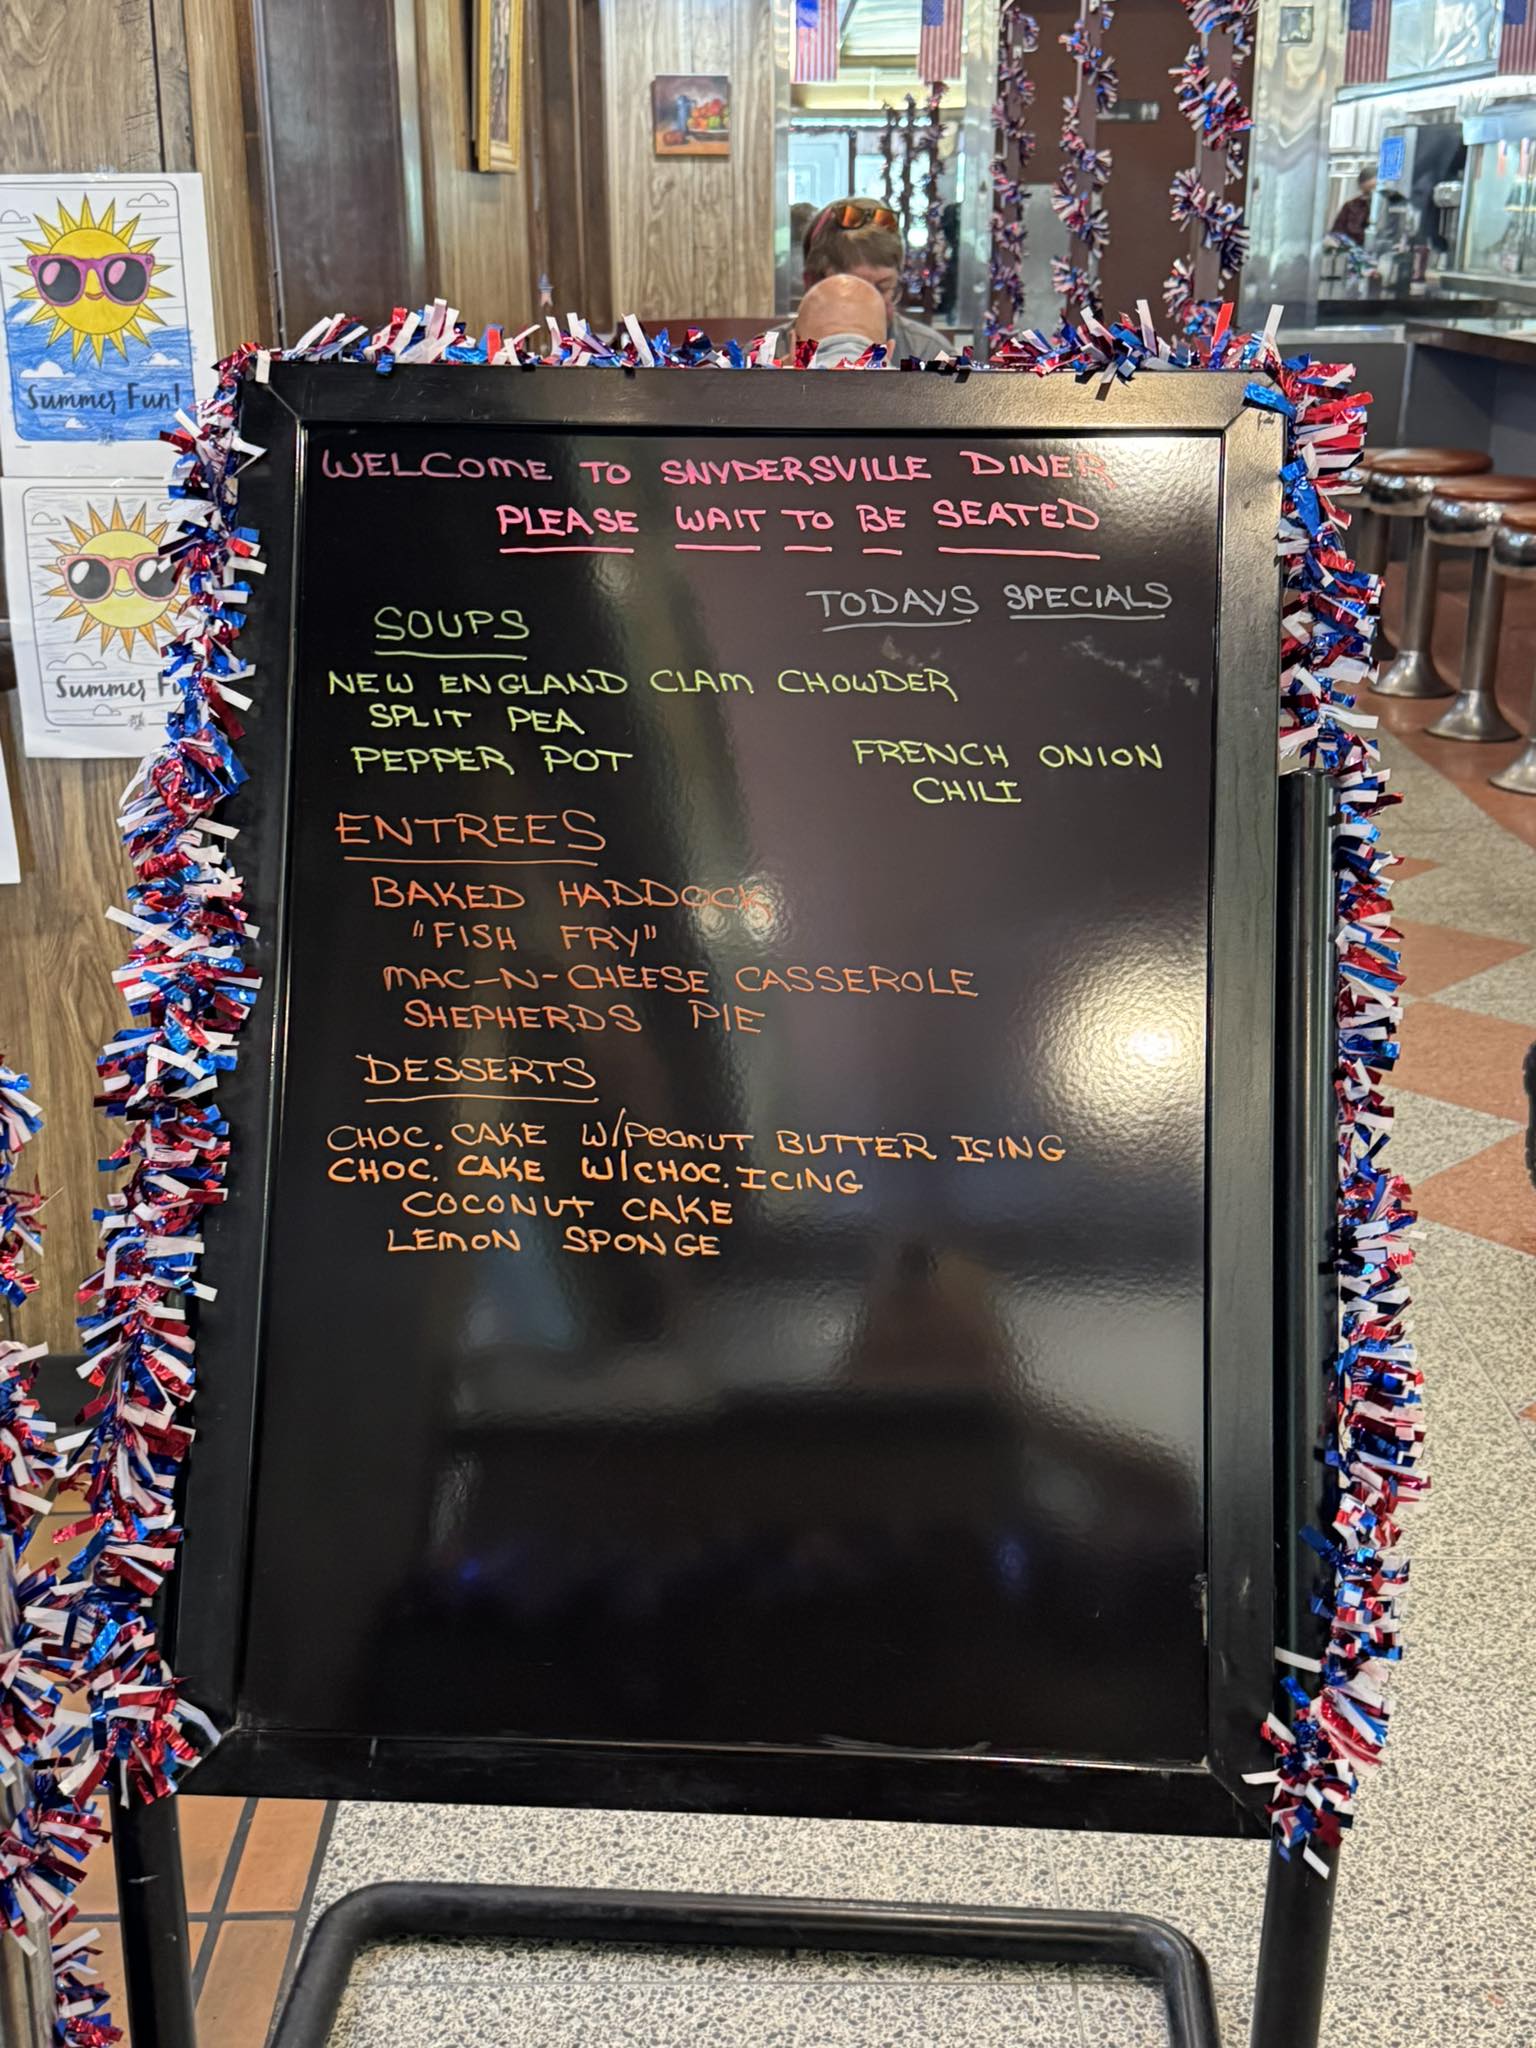 Summer Fun!
Summer Fu
WELCOME TO SNYDERSVILLE DINER
PLEASE WAIT TO BE SEATED
TODAYS SPECIALS
SOUPS
NEW ENGLAND CLAM CHOWDER
SPLIT PEA
PEPPER POT
FRENCH ONION
CHILI
ENTREES
BAKED HADDOCK
"FISH FRY"
MAC-N-CHEESE CASSEROLE
SHEPHERDS PIE
DESSERTS
CHOC. CAKE W/PeaNUT BUTTER ICING
CHOC. CAKE W/CHOC. ICING
COCONUT CAKE
LEMON SPONGE